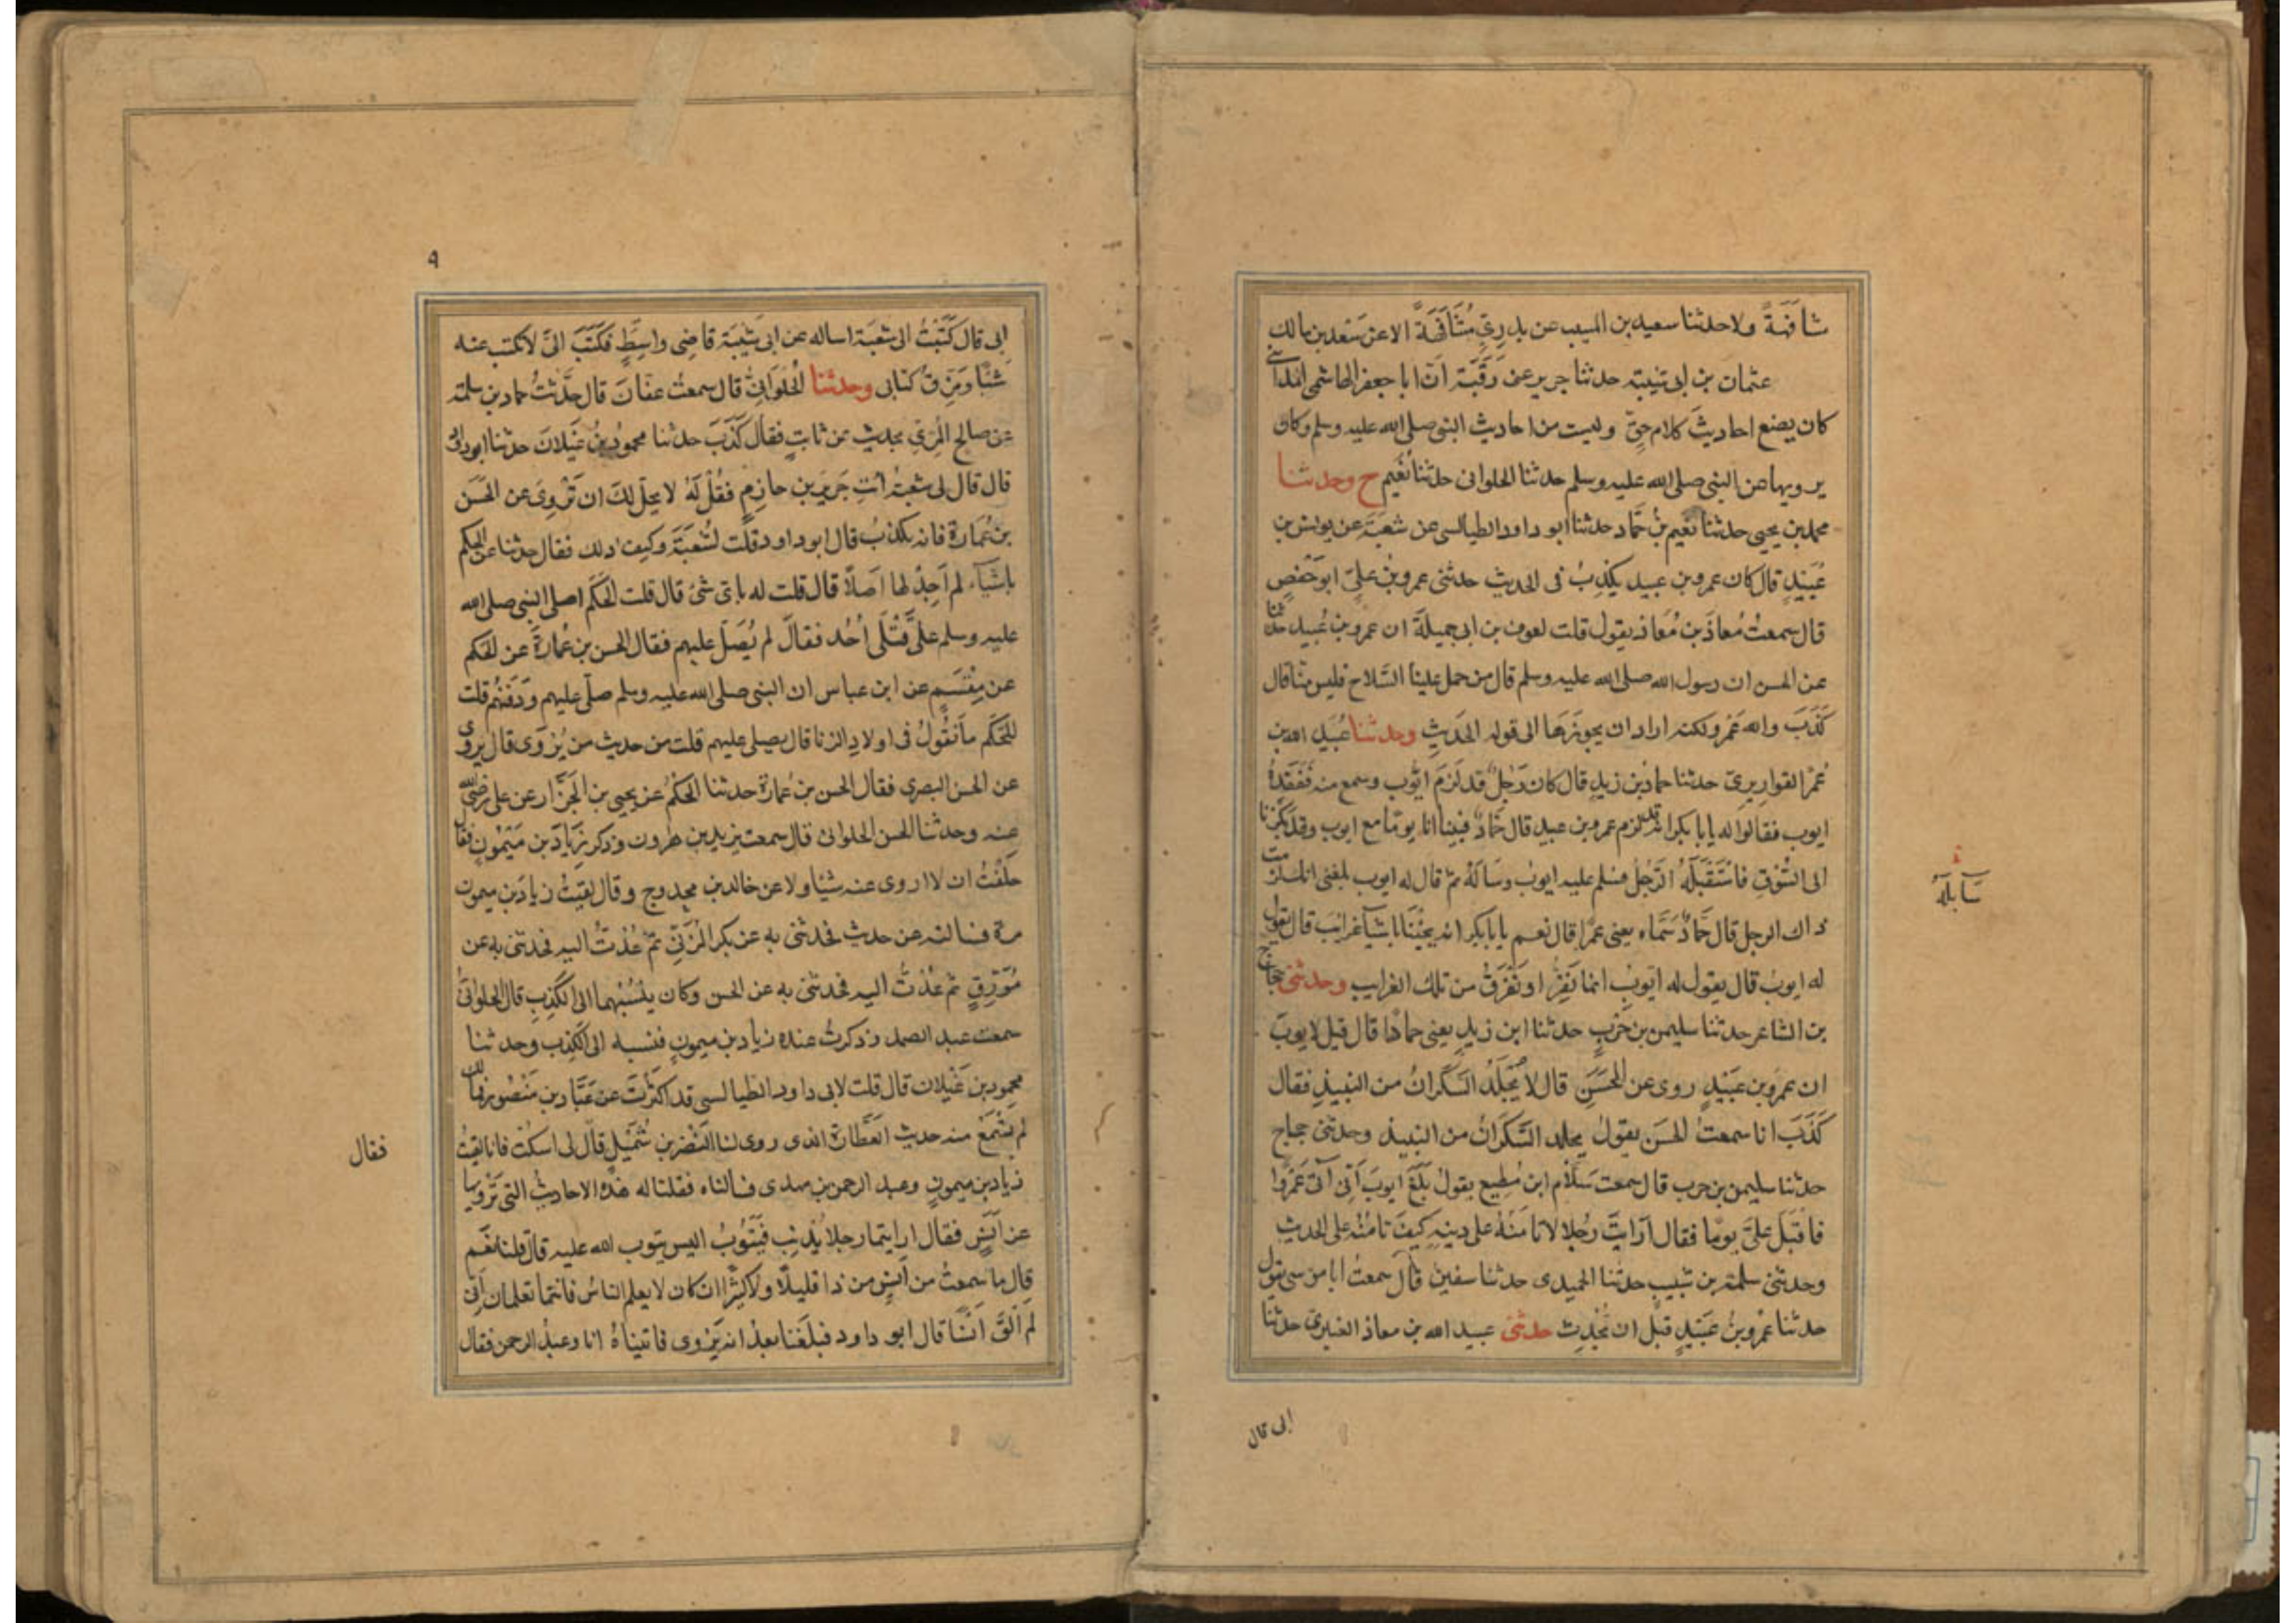 شافهة ولا حدثنا سعيد بن المسيب عن بدري مشافهة الا عن سعد بن مالك
عثمان بن ابى شيبة حدثنا جرير عن رقبة ان ابا جعفر الهاشمى المدائنى
كان يضع احاديث كلام حق وليست من احاديث النبى صلى الله عليه وسلم وكان
يرويها عن النبى صلى الله عليه وسلم حدثنا الحلوانى حدثنا نعيم ح وحدثنا
محمد بن يحيى حدثنا نعيم بن حماد حدثنا ابو داود الطيالسى عن شعبة عن يونس بن
عبيد قال كان عمرو بن عبيد يكذب فى الحديث حدثنى عمرو بن على ابو حفص
قال سمعت معاذ بن معاذ يقول قلت لعوف بن ابى جميلة ان عمرو بن عبيد حدثنا
عن الحسن ان رسول الله صلى الله عليه وسلم قال من حمل علينا السلاح فليس منا قال
كذب والله عمرو ولكنه اراد ان يحوزها الى قوله الخبيث وحدثنا عبيد الله بن
عمر القواريرى حدثنا حماد بن زيد قال كان رجل قد لزم ايوب وسمع منه ففقده
ايوب فقالوا له يابا بكر انه قد لزم عمرو بن عبيد قال حماد فبينا انا يوما مع ايوب وقد بكرنا
الى السوق فاستقبله الرجل فسلم عليه ايوب وساله ثم قال له ايوب بلغنى انك لزمت
ذاك الرجل قال حماد سماه يعنى عمرا قال نعم يابا بكر انه يجيئنا باشيآ غرائب قال يقول
له ايوب قال يقول له ايوب انما نفر او نفرق من تلك الغرايب وحدثنى حجاج
بن الشاعر حدثنا سليمن بن حرب حدثنا ابن زيد يعنى حمادا قال قيل لايوب
ان عمرو بن عبيد روى عن الحسن قال لا يجلد السكران من النبيذ فقال
كذب انا سمعت الحسن يقول يجلد السكران من النبيذ وحدثنى حجاج
حدثنا سليمن بن حرب قال سمعت سلام ابن مطيع يقول بلغ ايوب انى آتى عمروا
فاقبل على يوما فقال ارايت رجلا لا تامنه على دينه كيف تامنه على الحديث
وحدثنى سلمة بن شبيب حدثنا الحميدى حدثنا سفين قال سمعت ابا موسى يقول
حدثنا عمرو بن عبيد قبل ان يحدث حدثنى عبيد الله بن معاذ العنبرى حدثنا
ابى قال
٩
ابى قال كتبت الى شعبة اساله عن ابى شيبة قاضى واسط فكتب الى لا تكتب عنه
شيئا ومزق كتابى وحدثنا الحلوانى قال سمعت عفان قال حدثت حماد بن سلمة
عن صالح المرى بحديث عن ثابت فقال كذب حدثنا محمود بن غيلان حدثنا ابو داود
قال قال لى شعبة ائت جرير بن حازم فقل له لا يحل لك ان تروى عن الحسن
بن عمارة فانه يكذب قال ابو داود قلت لشعبة وكيف ذلك فقال حدثنا عن الحكم
باشيآء لم اجد لها اصلا قال قلت له باى شئ قال قلت للحكم اصلى النبى صلى الله
عليه وسلم على قتلى احد فقال لم يصل عليهم فقال الحسن بن عمارة عن الحكم
عن مقسم عن ابن عباس ان النبى صلى الله عليه وسلم صلى عليهم ودفنهم قلت
للحكم ما تقول فى اولاد الزنا قال يصلى عليهم قلت من حديث من يروى قال يروى
عن الحسن البصرى فقال الحسن بن عمارة حدثنا الحكم عن يحيى بن الجزار عن على رضى الله
عنه وحدثنا الحسن الحلوانى قال سمعت يزيد بن هرون وذكر زياد بن ميمون فقال
حلفت ان لا اروى عنه شيئا ولا عن خالد بن مجدوج وقال لقيت زياد بن ميمون
مرة فسالته عن حديث فحدثنى به عن بكر المزنى ثم عدت اليه فحدثنى به عن
مورق ثم عدت اليه فحدثنى به عن الحسن وكان ينسبهما الى الكذب قال الحلوانى
سمعت عبد الصمد وذكرت عنده زياد بن ميمون فنسبه الى الكذب وحدثنا
محمود بن غيلان قال قلت لابى داود الطيالسى قد اكثرت عن عباد بن منصور فما لك
لم تسمع منه حديث العطارة الذى روى لنا النضر بن شميل قال لى اسكت فانا لقيت
زياد بن ميمون وعبد الرحمن بن مهدى فسالناه فقلنا له هذه الاحاديث التى ترويها
عن انس فقال ارايتما رجلا يذنب فيتوب اليس يتوب الله عليه قال قلنا نعم
قال ما سمعت من انس من ذا قليلا ولا كثيرا ان كان لا يعلم الناس فانتما تعلمان انى
لم الق انسا قال ابو داود فبلغنا بعد انه يروى فاتيناه انا وعبد الرحمن فقال
فقال